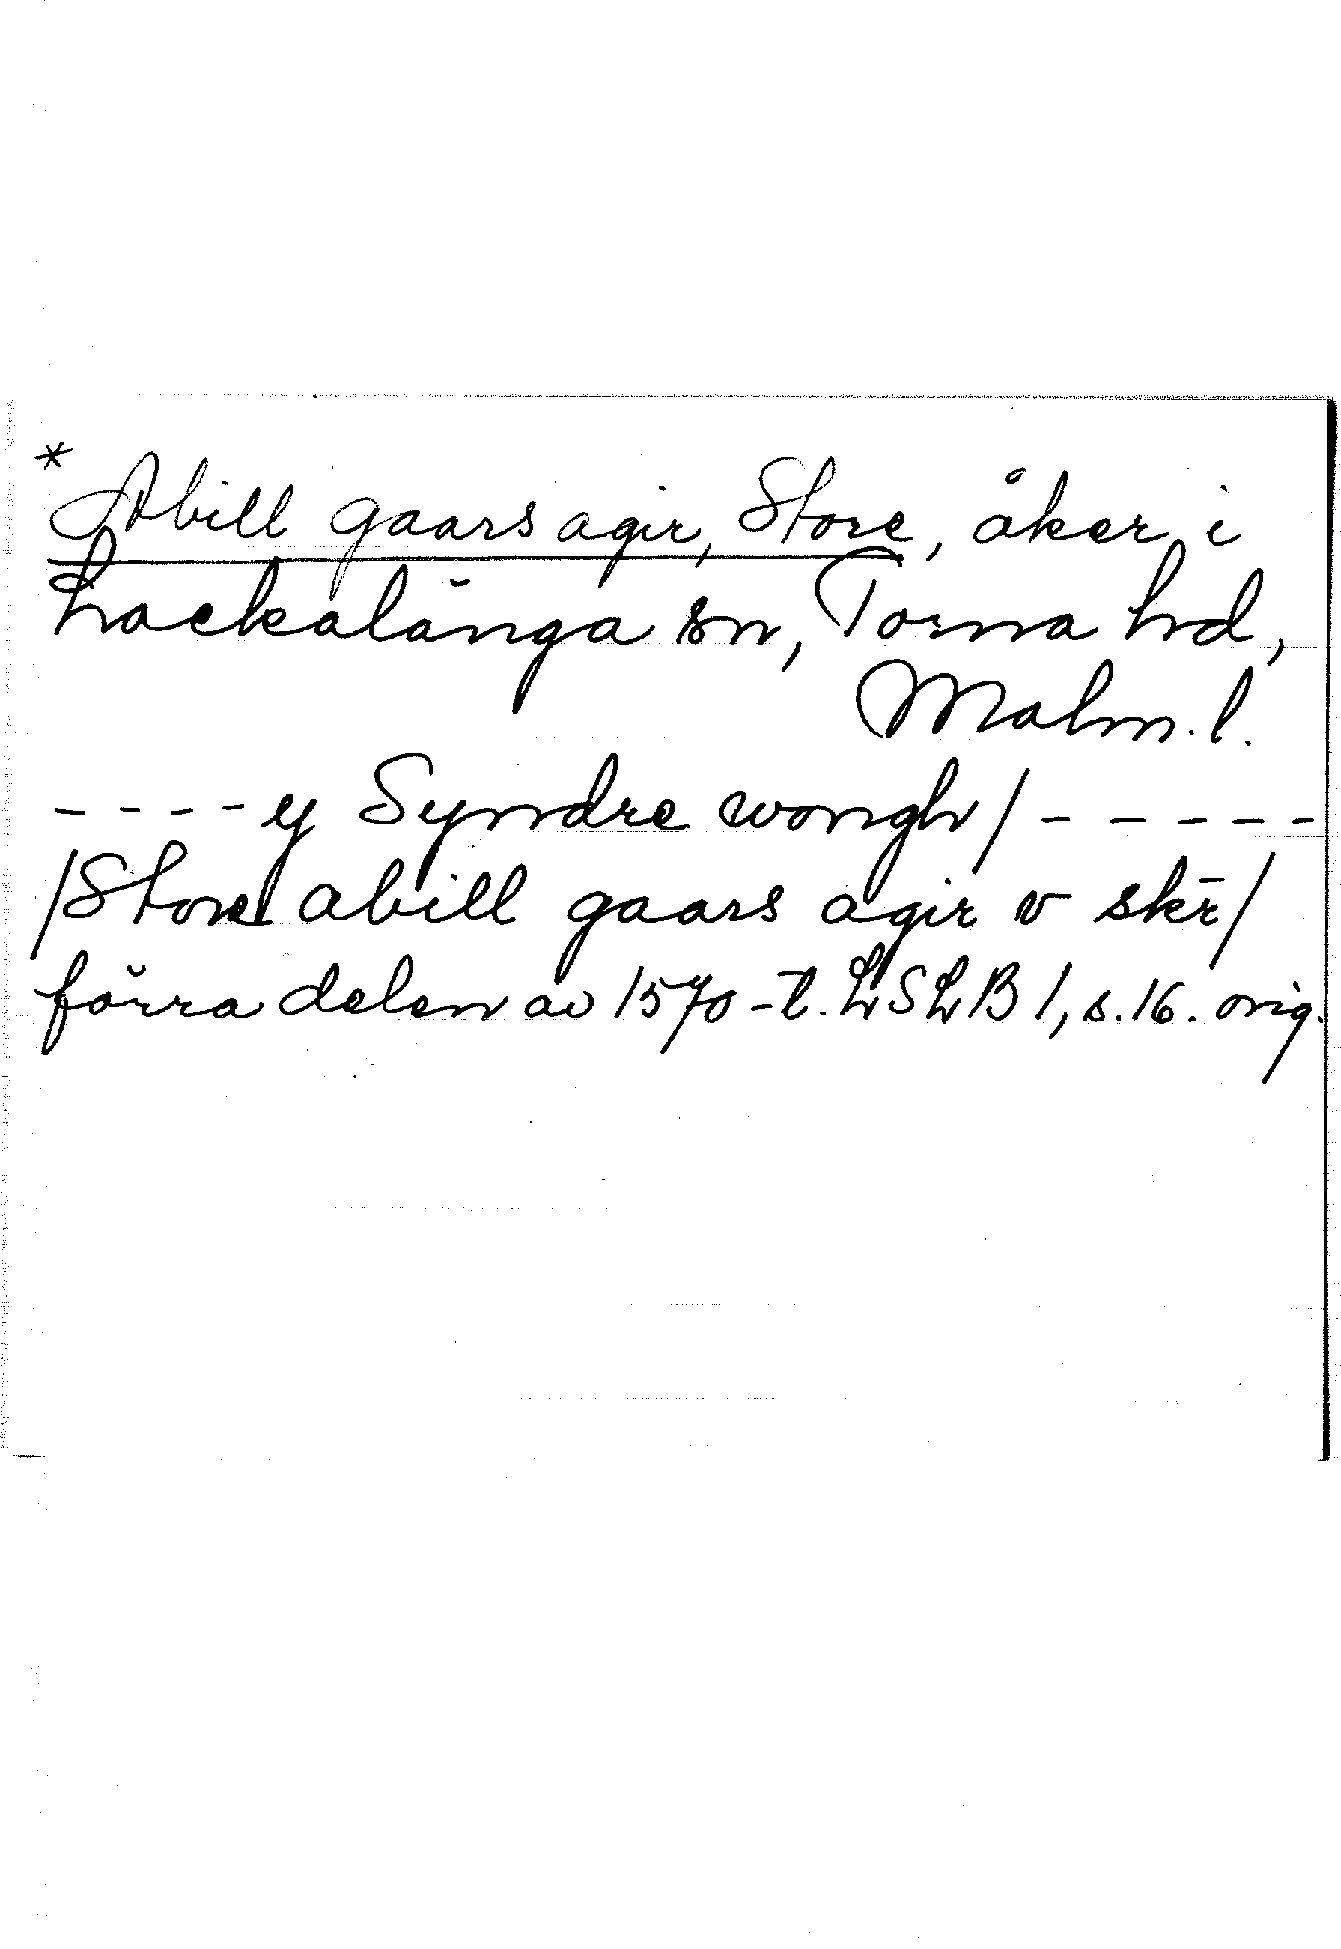 * Abill gaars agir, Store, åker i
Lackalänga sn, Torna hd,
Malm. l.
- - - - y Syndre wongh / - - - - -
/Store abill gaars agir v skr̄/
förra delen av 1570-t. LSLB 1, s. 16. orig.